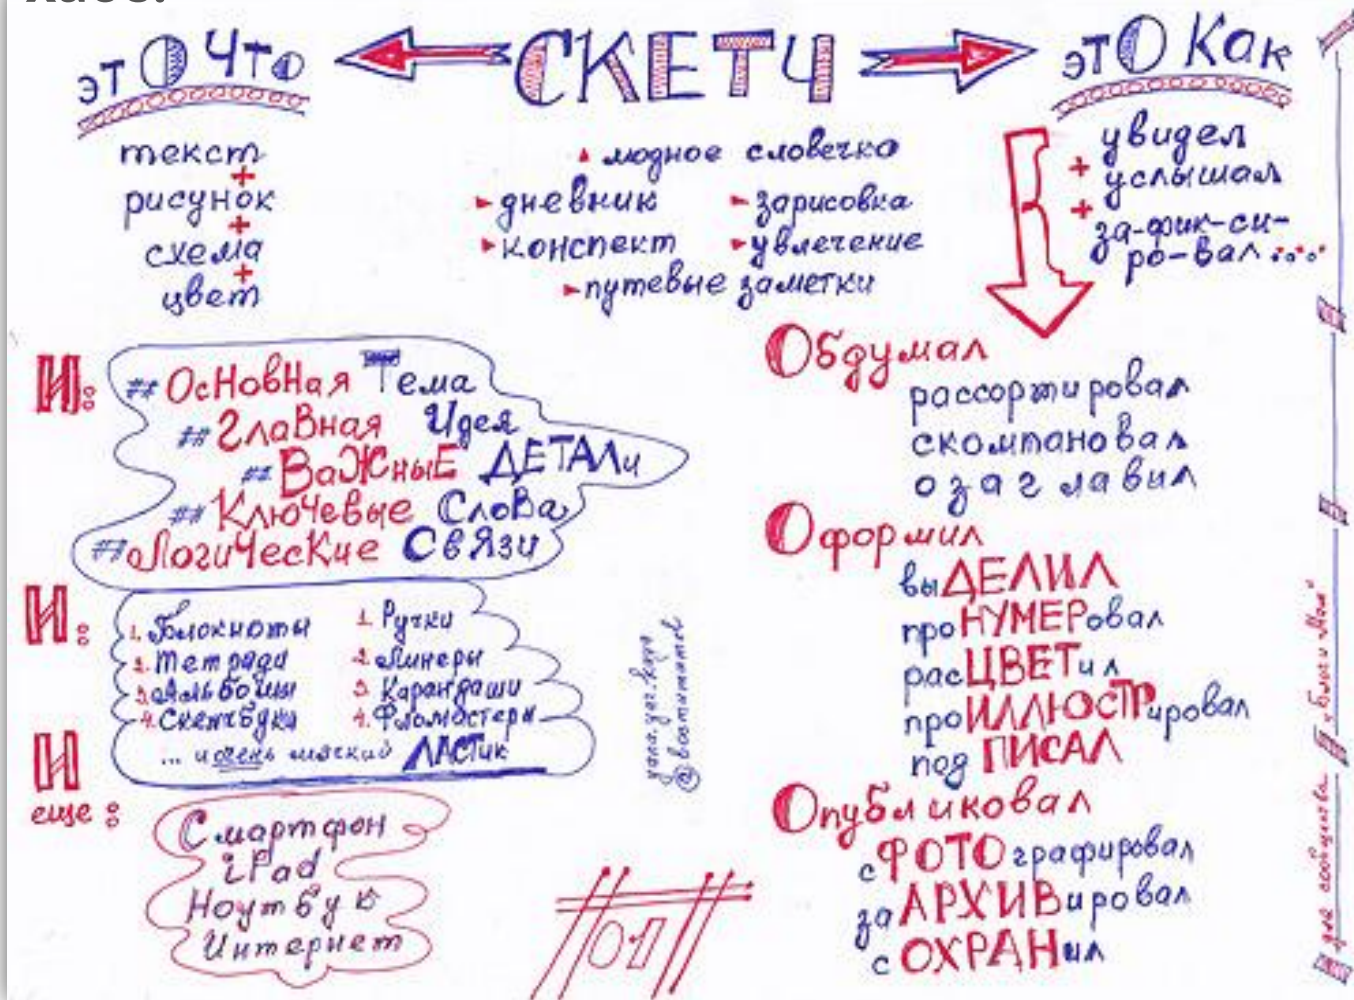 этО Что
СКЕТЧ
этО Как
текст
+
рисунок
+
схема
+
цвет
модное словечко
дневник
зарисовка
конспект
увлечение
путевые заметки
увидел
+ услышал
+ за-фик-си-
ро-вал.....
И:
## ОсНовНая Тема
## ГлаВная Идея
## ВаЖныЕ ДЕТАЛи
## КлюЧевые СлоВа
## ЛогиЧесКие СвЯзи
И:
1. Блокноты
2. Тетради
3. Альбомы
4. Скетчбуки
1. Ручки
2. Линеры
3. Карандаши
4. Фломастеры
... и очень мягкий ЛАСТик
И
еще:
Смартфон
iPad
Ноутбук
Интернет
Обдумал
рассортировал
скомпановал
озаглавил
Оформил
выДЕЛИЛ
проНУМЕРовал
расЦВЕТил
проИЛЛЮСТРировал
подПИСАЛ
Опубликовал
сФОТОграфировал
заАРХИВировал
сОХРАНил
01
для сообщества